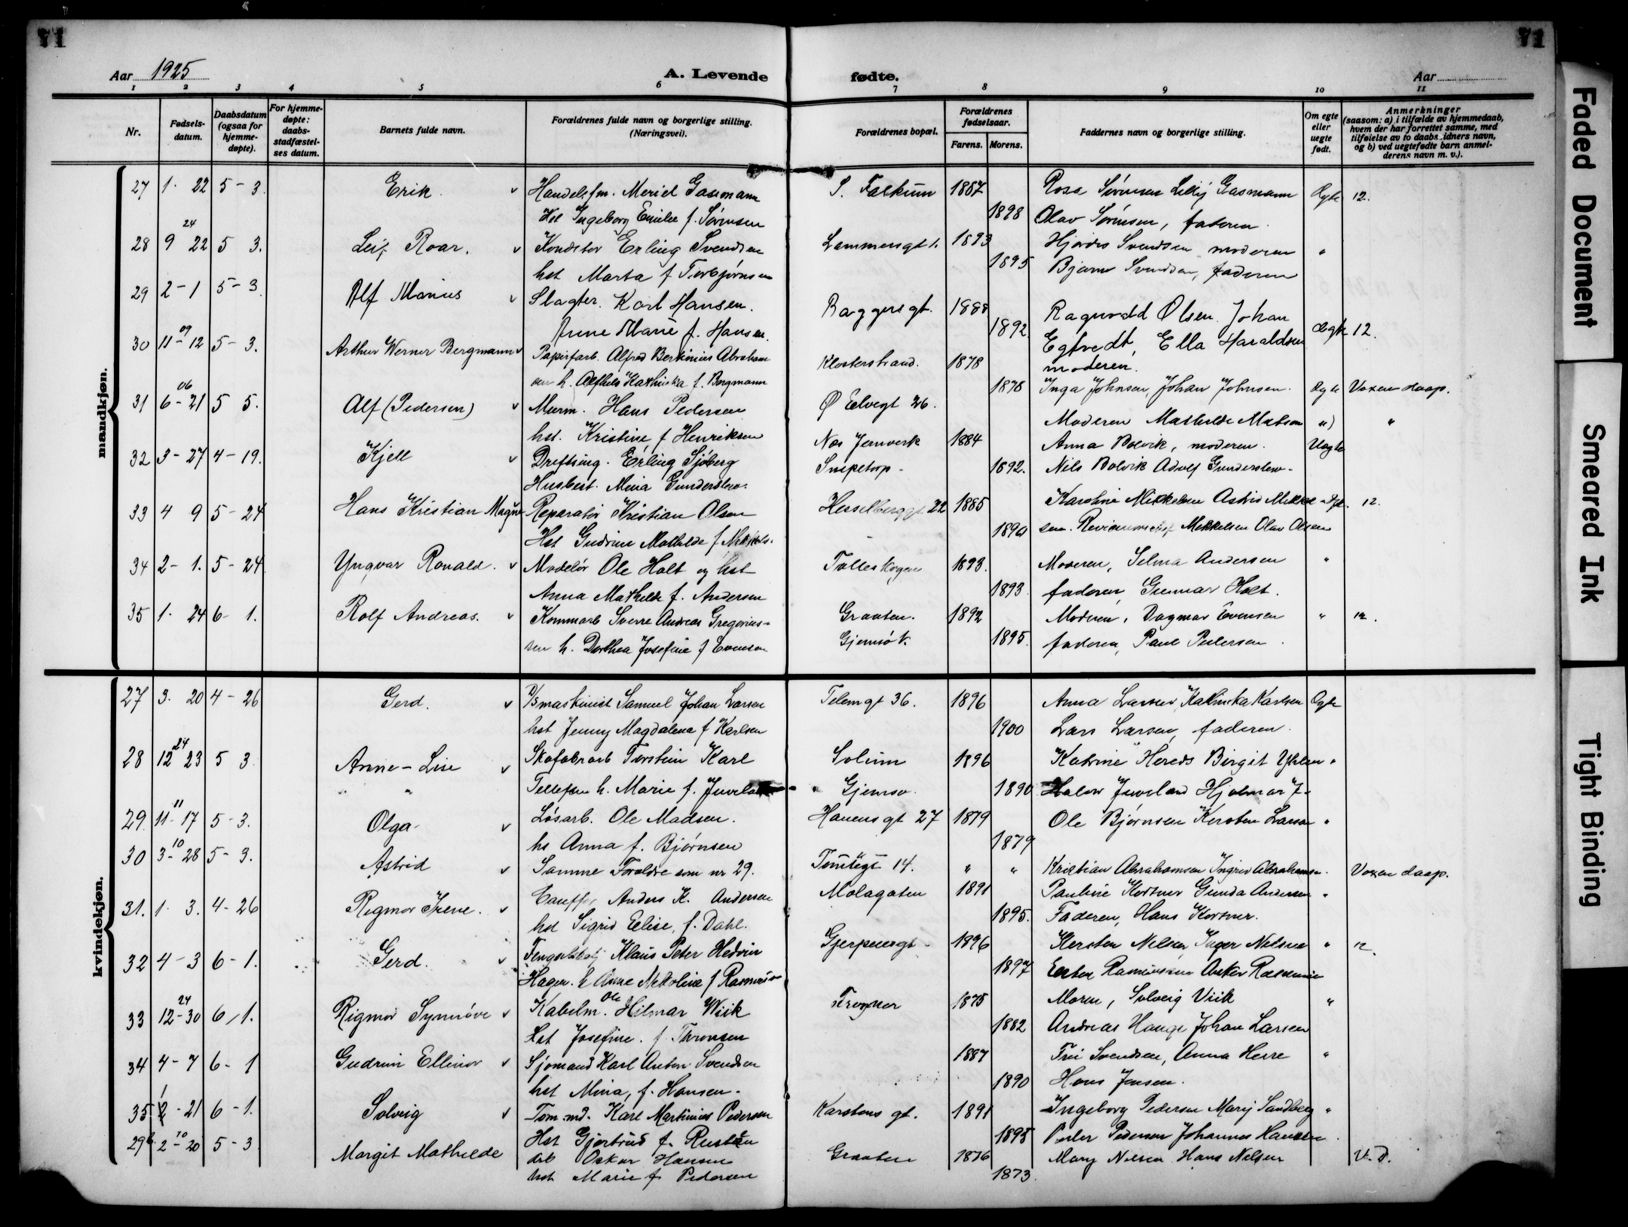 71
71
Aar 1925
A. Levende fødte.
Aar
1 2 3 4 5 6 7 8 9 10 11
Nr.
Fødsels-
datum.
Daabsdatum
(ogsaa for
hjemme-
døpte).
For hjemme-
døpte:
daabs-
stadfæstel-
ses datum.
Barnets fulde navn.
Forældrenes fulde navn og borgerlige stilling.
(Næringsvei).
Forældrenes bopæl.
Forældrenes
fødselsaar.
Farens. Morens.
Faddernes navn og borgerlige stilling.
Om egte
eller
uegte
født.
Anmerkninger
(saasom: a) i tilfælde av hjemmedaab,
hvem der har forrettet samme, med
tilføielse av to daabsvidners navn,
og b) ved uegtefødte barn anmel-
derens navn m. v.).
mandkjøn.
27 1. 22 5-3. Erik. Handelsfm. Gasmann S. Falkum 1887 Rosa Sørensen Gasmann Egte 12.
Hst Ingeborg Emilie f. Sørensen 1898 Olav Sørensen, faderen.
24
28 9 22 5 3. Leif Roar. Konditor Erling Svendsen 1893 Hjørdis Svendsen moderen "
hst Marta f Torbjørnsen 1895 Bjarne Svendsen, faderen
29 2-1 5-3 Alf Marius Slagter. Karl Hansen. Baggersgt. 1888 Ragnvald Olsen. Johan
Anne Marie f. Hansen. 1892 Egtvedt, Ella Haraldsen Egte 12.
09
30 11-12 5-3. Arthur Werner Bergmann Papirarb. Alfred Abraham Klosterstrand. 1878 moderen.
sen h. Kathinka f. Bergmann 1878 Inga Johnsen, Johan Johnsen. Egte Voxen daap.
06
31 6-21 5 5. Alf (Pedersen) Murm. Hans Pedersen Ø Elvegt 26. Moderen Mathilde Matson "
hst. Kristine f Henriksen
32 3-27 4-19. Kjell Drifting. Erling Sjøberg Næs Jernverk 1884 Anna Bolvik, moderen. Uegte
Husbest. Mina Gundersen. Snipetorp- 1892. Nils Bolvik Adolf Gundersen.
33 4 9 5-24 Hans Kristian Magne Reparatør Kristian Olsen Hesselberggt 22 1885 Karoline Mikkelsen Astrid 12.
Hst Gudrun Mathilde f. 1890 Mekkelsen Olav Olsen
34 2-1. 5-24 Yngvar Ronald. Modelør Ole Holt og hst Tolleskogen 1893. Moderen, Selma Andersen "
Anna Mathilde f. Andersen 1893 faderen, Gunnar Holt.
35 1. 24 6-1. Rolf Andreas. Kommarb Sverre Andreas Gregorius- Graaten. 1892 Moderen, Dagmar Evensen " 12.
sen h. Dorthea Josefine f Evensen Gjemsø k. 1895 faderen, Paul Pedersen.
kvindekjøn.
27 3. 20 4-26 Gerd. maskinist Samuel Johan Larsen Telemgt 36. 1896 Anna Larsen, Kathinka Karlsen Egte
hst Jenny Magdalena f Karlsen 1900 Lars Larsen, faderen.
24
28 12 23 5 3 Anne-Lise Skofabrarb Torstein Karl Solum 1896 Katrine Hereds Birgit "
Tellefsen h. Marie f. Juveland Gjemsø. 1890 Halvor Juveland Hjalmar
11
29. 11-17 5-3. Olga Løsarb. Ole Madsen. Havensgt 27 1879 Ole Bjørnsen Kersten Larsen "
hs Anna f. Bjørnsen 1879
10
30 3-28 5-3. Astrid Samme Foreldre som nr 29. Tomtegt 14. " " Kristian Abrahamsen Ingrid Abrahamsen. Voxen daap.
31. 1. 3. 4-26 Rigmor Irene. Anders K. Andersen Molagaten 1891 Pauline Kortner Gunda Andersen "
hst Sigrid Elise, f. Dahl. 1895. Faderen, Hans Kortner.
32 4-3 6-1. Gerd. Klaus Peter Hedvin Gjerpensgt. 1896 Kersten Nilsen, Inger Nilsen " 12
Hagen. h Anne Nikoline f Rasmussen 1897 Ester Rasmussen
24
33 12-30 6-1. Rigmor Synnøve Kabelm. Ole Hilmar Wiik 1875 Moren, Solveig Viik "
Hst Josefine. f. Thronsen 1882 Andreas Hauge Johan Larsen
34 4-7 6-1 Gudrun Ellinor Sjømand Karl Anton Svendsen 1887 Svendsen, Anna Herre "
hst Mina, f. Hansen. 1890 Hans Jensen.
35 21 6-1. Solveig Tom.md. Karl Martinius Pedersen Karstens gt. 1891 Ingeborg Pedersen Mary Sandberg "
Hst Gjertrud f. 1895 Peder Pedersen Johannes Hansen.
10
29b 2-20 5-3 Margit Mathilde arb Oskar Hansen Graaten 1876 Mary Nilsen Hans Nelsen V. D.
hst Marie f Pedersen 1873.
Faded Document
Smeared Ink
Tight Binding